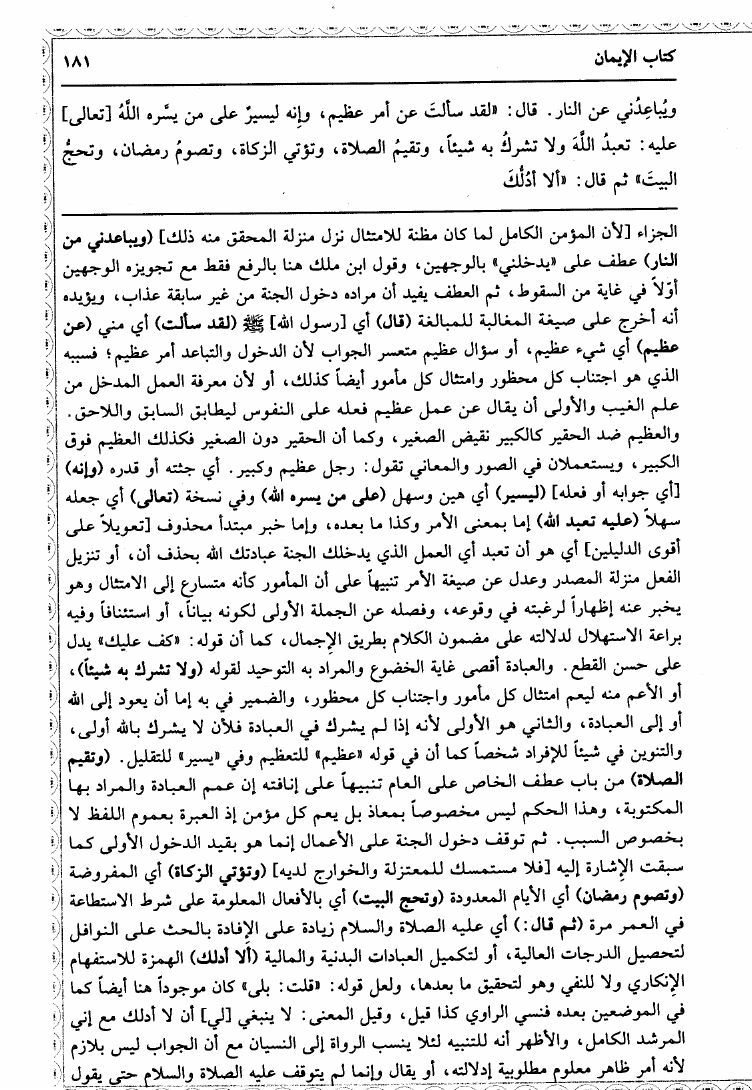 كتاب الإيمان ١٨١
ويُباعِدُني عن النار. قال: «لقد سألتَ عن أمر عظيم، وإنه ليسيرٌ على من يسَّره اللَّهُ [تعالى]
عليه: تعبدُ اللَّهَ ولا تشركُ به شيئاً، وتقيمُ الصلاة، وتؤتي الزكاة، وتصومُ رمضان، وتحجُّ
البيتَ» ثم قال: «ألا أدُلُّكَ
الجزاء [لأن المؤمن الكامل لما كان مظنة للامتثال نزل منزلة المحقق منه ذلك] (ويباعدني من
النار) عطف على «يدخلني» بالوجهين، وقول ابن ملك هنا بالرفع فقط مع تجويزه الوجهين
أوّلاً في غاية من السقوط، ثم العطف يفيد أن مراده دخول الجنة من غير سابقة عذاب، ويؤيده
أنه أخرج على صيغة المغالبة للمبالغة (قال) أي [رسول الله] ﷺ (لقد سألت) أي مني (عن
عظيم) أي شيء عظيم، أو سؤال عظيم متعسر الجواب لأن الدخول والتباعد أمر عظيم؛ فسببه
الذي هو اجتناب كل محظور وامتثال كل مأمور أيضاً كذلك، أو لأن معرفة العمل المدخل من
علم الغيب والأولى أن يقال عن عمل عظيم فعله على النفوس ليطابق السابق واللاحق.
والعظيم ضد الحقير كالكبير نقيض الصغير، وكما أن الحقير دون الصغير فكذلك العظيم فوق
الكبير، ويستعملان في الصور والمعاني تقول: رجل عظيم وكبير. أي جثته أو قدره (وإنه)
[أي جوابه أو فعله] (ليسير) أي هين وسهل (على من يسره الله) وفي نسخة (تعالى) أي جعله
سهلاً (عليه تعبد الله) إما بمعنى الأمر وكذا ما بعده، وإما خبر مبتدأ محذوف [تعويلاً على
أقوى الدليلين] أي هو أن تعبد أي العمل الذي يدخلك الجنة عبادتك الله بحذف أن، أو تنزيل
الفعل منزلة المصدر وعدل عن صيغة الأمر تنبيهاً على أن المأمور كأنه متسارع إلى الامتثال وهو
يخبر عنه إظهاراً لرغبته في وقوعه، وفصله عن الجملة الأولى لكونه بياناً، أو استئنافاً وفيه
براعة الاستهلال لدلالته على مضمون الكلام بطريق الإجمال، كما أن قوله: «كف عليك» يدل
على حسن القطع. والعبادة أقصى غاية الخضوع والمراد به التوحيد لقوله (ولا تشرك به شيئاً)،
أو الأعم منه ليعم امتثال كل مأمور واجتناب كل محظور، والضمير في به إما أن يعود إلى الله
أو إلى العبادة، والثاني هو الأولى لأنه إذا لم يشرك في العبادة فلأن لا يشرك بالله أولى،
والتنوين في شيئاً للإفراد شخصاً كما أن في قوله «عظيم» للتعظيم وفي «يسير» للتقليل. (وتقيم
الصلاة) من باب عطف الخاص على العام تنبيهاً على إنافته إن عمم العبادة والمراد بها
المكتوبة، وهذا الحكم ليس مخصوصاً بمعاذ بل يعم كل مؤمن إذ العبرة بعموم اللفظ لا
بخصوص السبب. ثم توقف دخول الجنة على الأعمال إنما هو بقيد الدخول الأولى كما
سبقت الإشارة إليه [فلا مستمسك للمعتزلة والخوارج لديه] (وتؤتي الزكاة) أي المفروضة
(وتصوم رمضان) أي الأيام المعدودة (وتحج البيت) أي بالأفعال المعلومة على شرط الاستطاعة
في العمر مرة (ثم قال:) أي عليه الصلاة والسلام زيادة على الإفادة بالحث على النوافل
لتحصيل الدرجات العالية، أو لتكميل العبادات البدنية والمالية (ألا أدلك) الهمزة للاستفهام
الإنكاري ولا للنفي وهو لتحقيق ما بعدها، ولعل قوله: «قلت: بلى» كان موجوداً هنا أيضاً كما
في الموضعين بعده فنسي الراوي كذا قيل، وقيل المعنى: لا ينبغي [لي] أن لا أدلك مع إني
المرشد الكامل، والأظهر أنه للتنبيه لئلا ينسب الرواة إلى النسيان مع أن الجواب ليس بلازم
لأنه أمر ظاهر معلوم مطلوبية إدلالته، أو يقال وإنما لم يتوقف عليه الصلاة والسلام حتى يقول